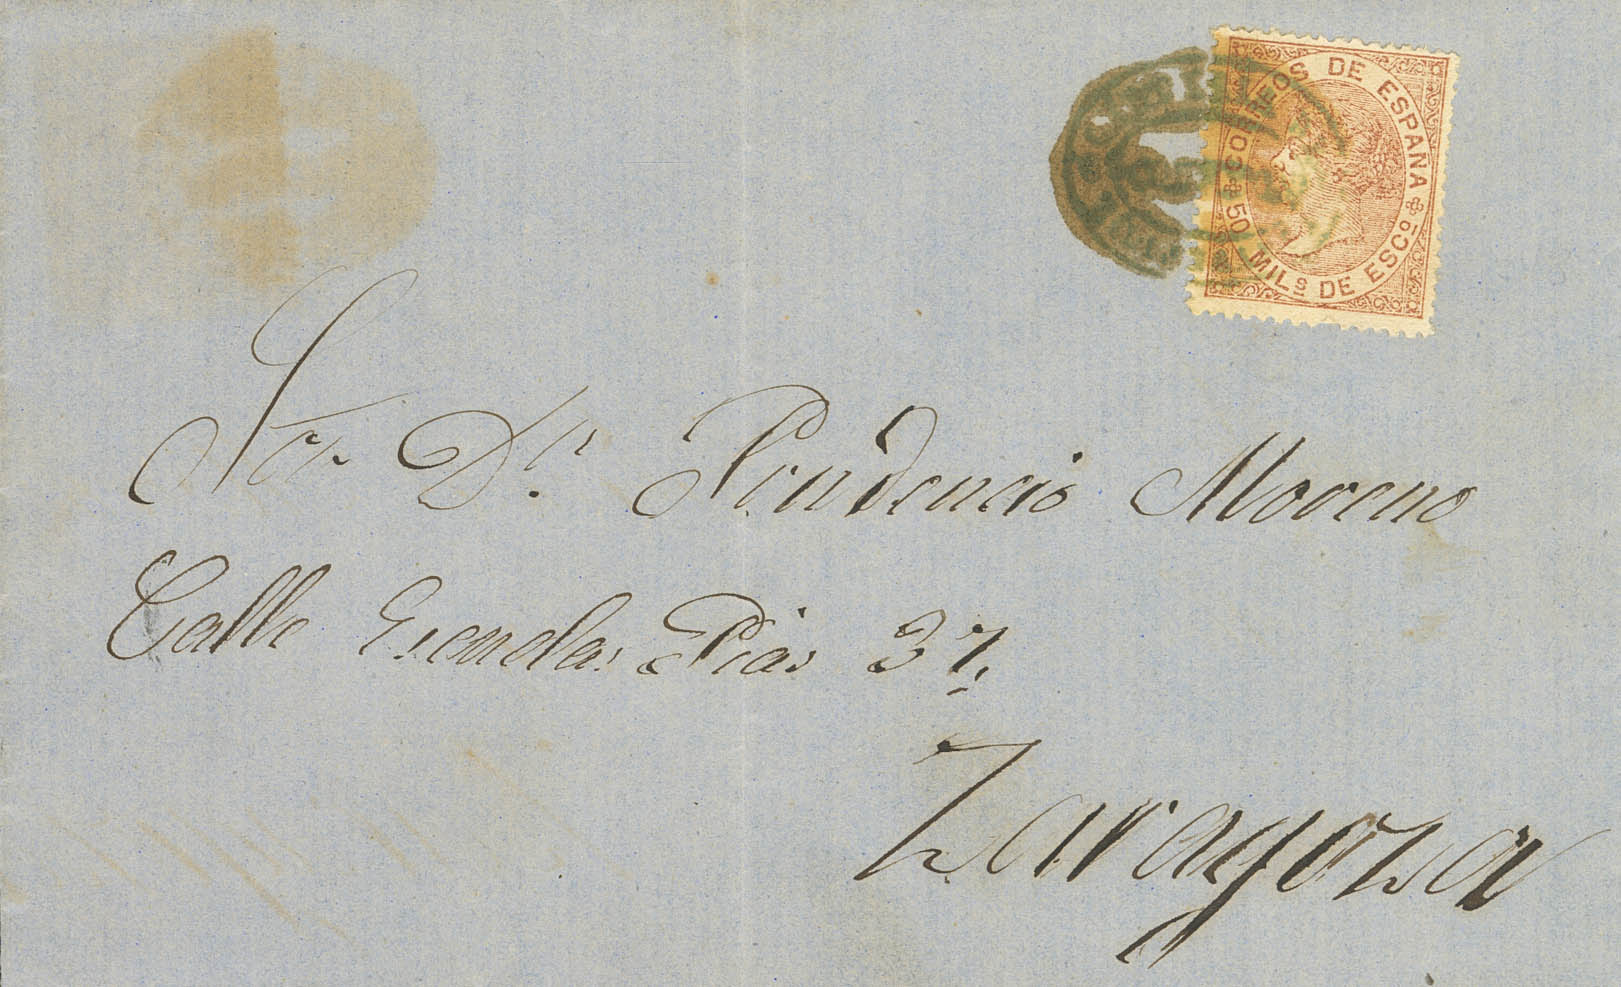 CORREOS DE ESPAÑA
50 MILS DE ESCO
Sor Dn. Prudencio Moreno
Calle Escuelas Pias 37,
Zaragoza